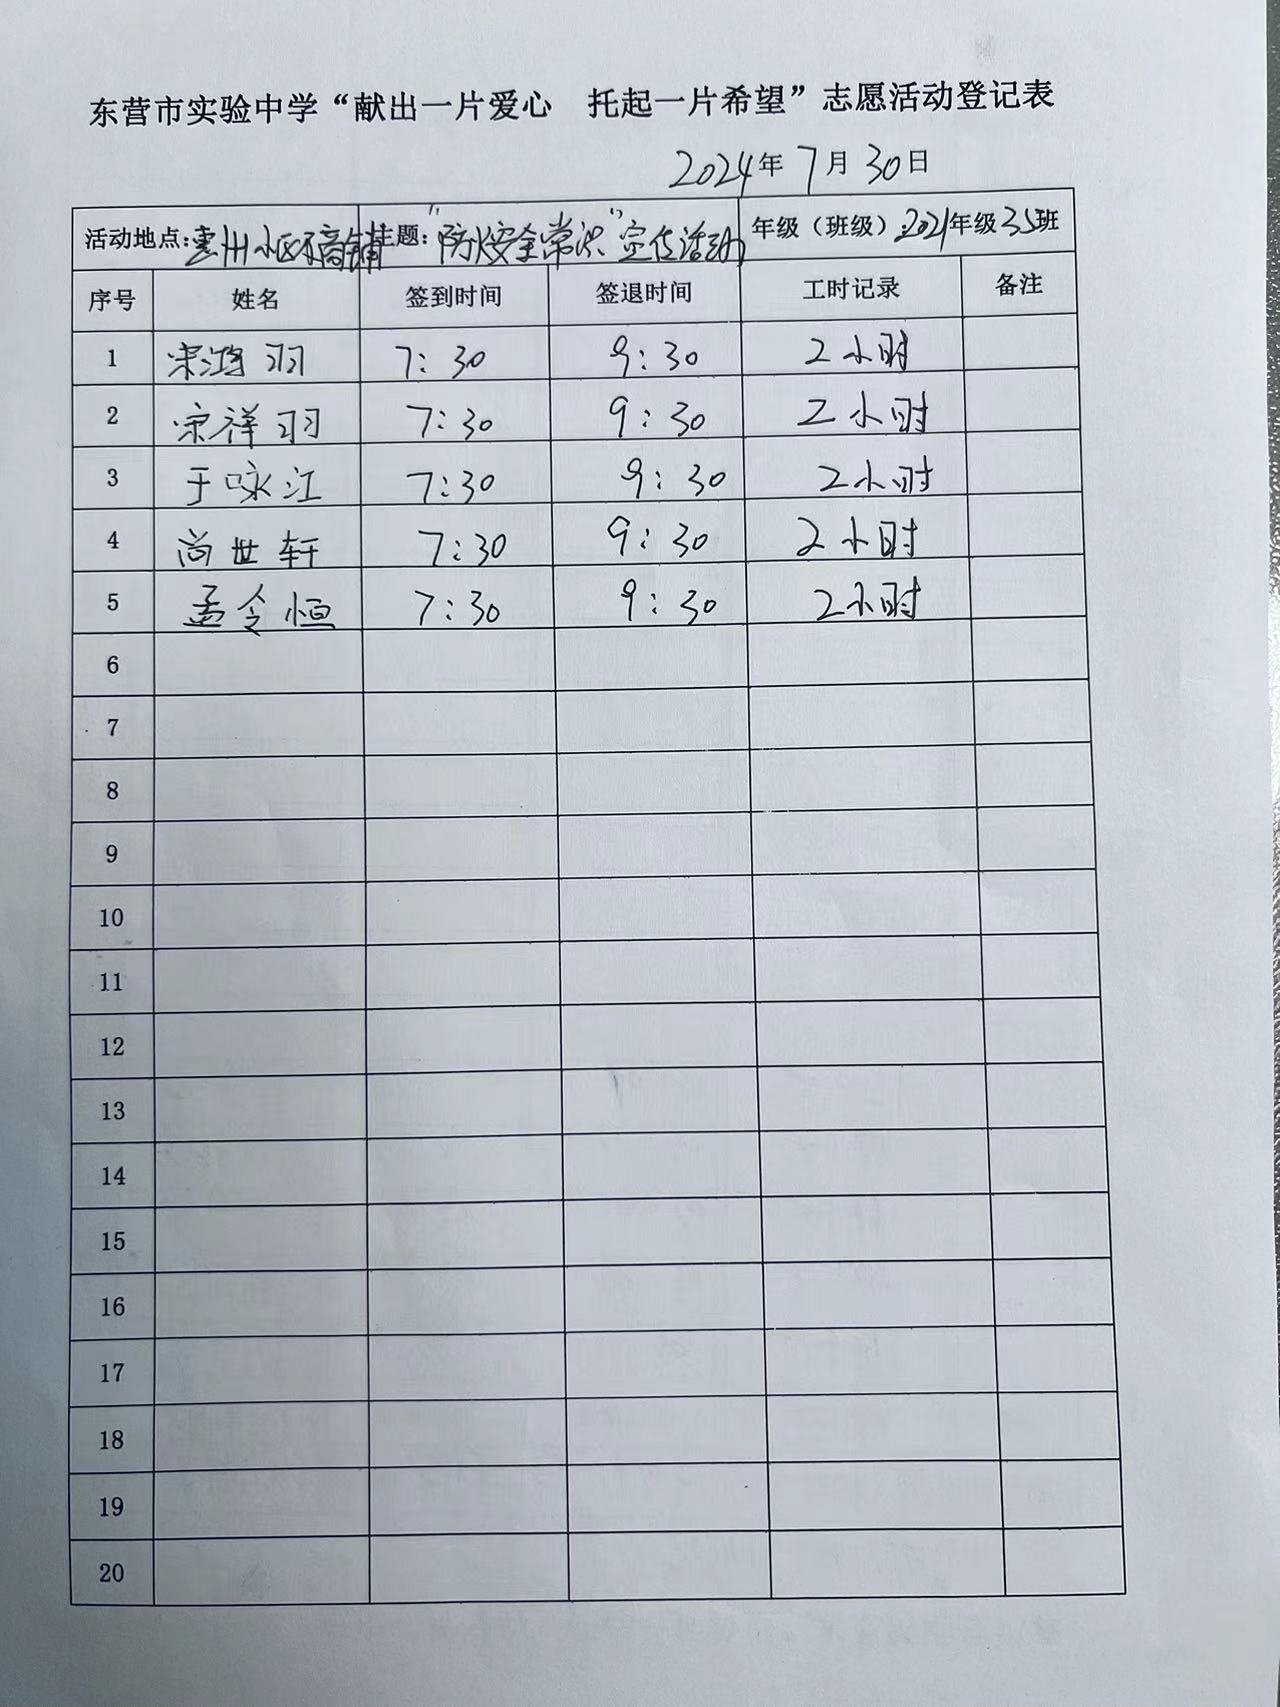 东营市实验中学“献出一片爱心 托起一片希望”志愿活动登记表
2024年7月30日
活动地点:惠州小区商铺 主题:“防火安全常识”宣传活动 年级（班级）:2021年级35班
序号 姓名 签到时间 签退时间 工时记录 备注
1 宋鸿羽 7:30 9:30 2小时
2 宋祥羽 7:30 9:30 2小时
3 于咏江 7:30 9:30 2小时
4 尚世轩 7:30 9:30 2小时
5 孟令恒 7:30 9:30 2小时
6
7
8
9
10
11
12
13
14
15
16
17
18
19
20